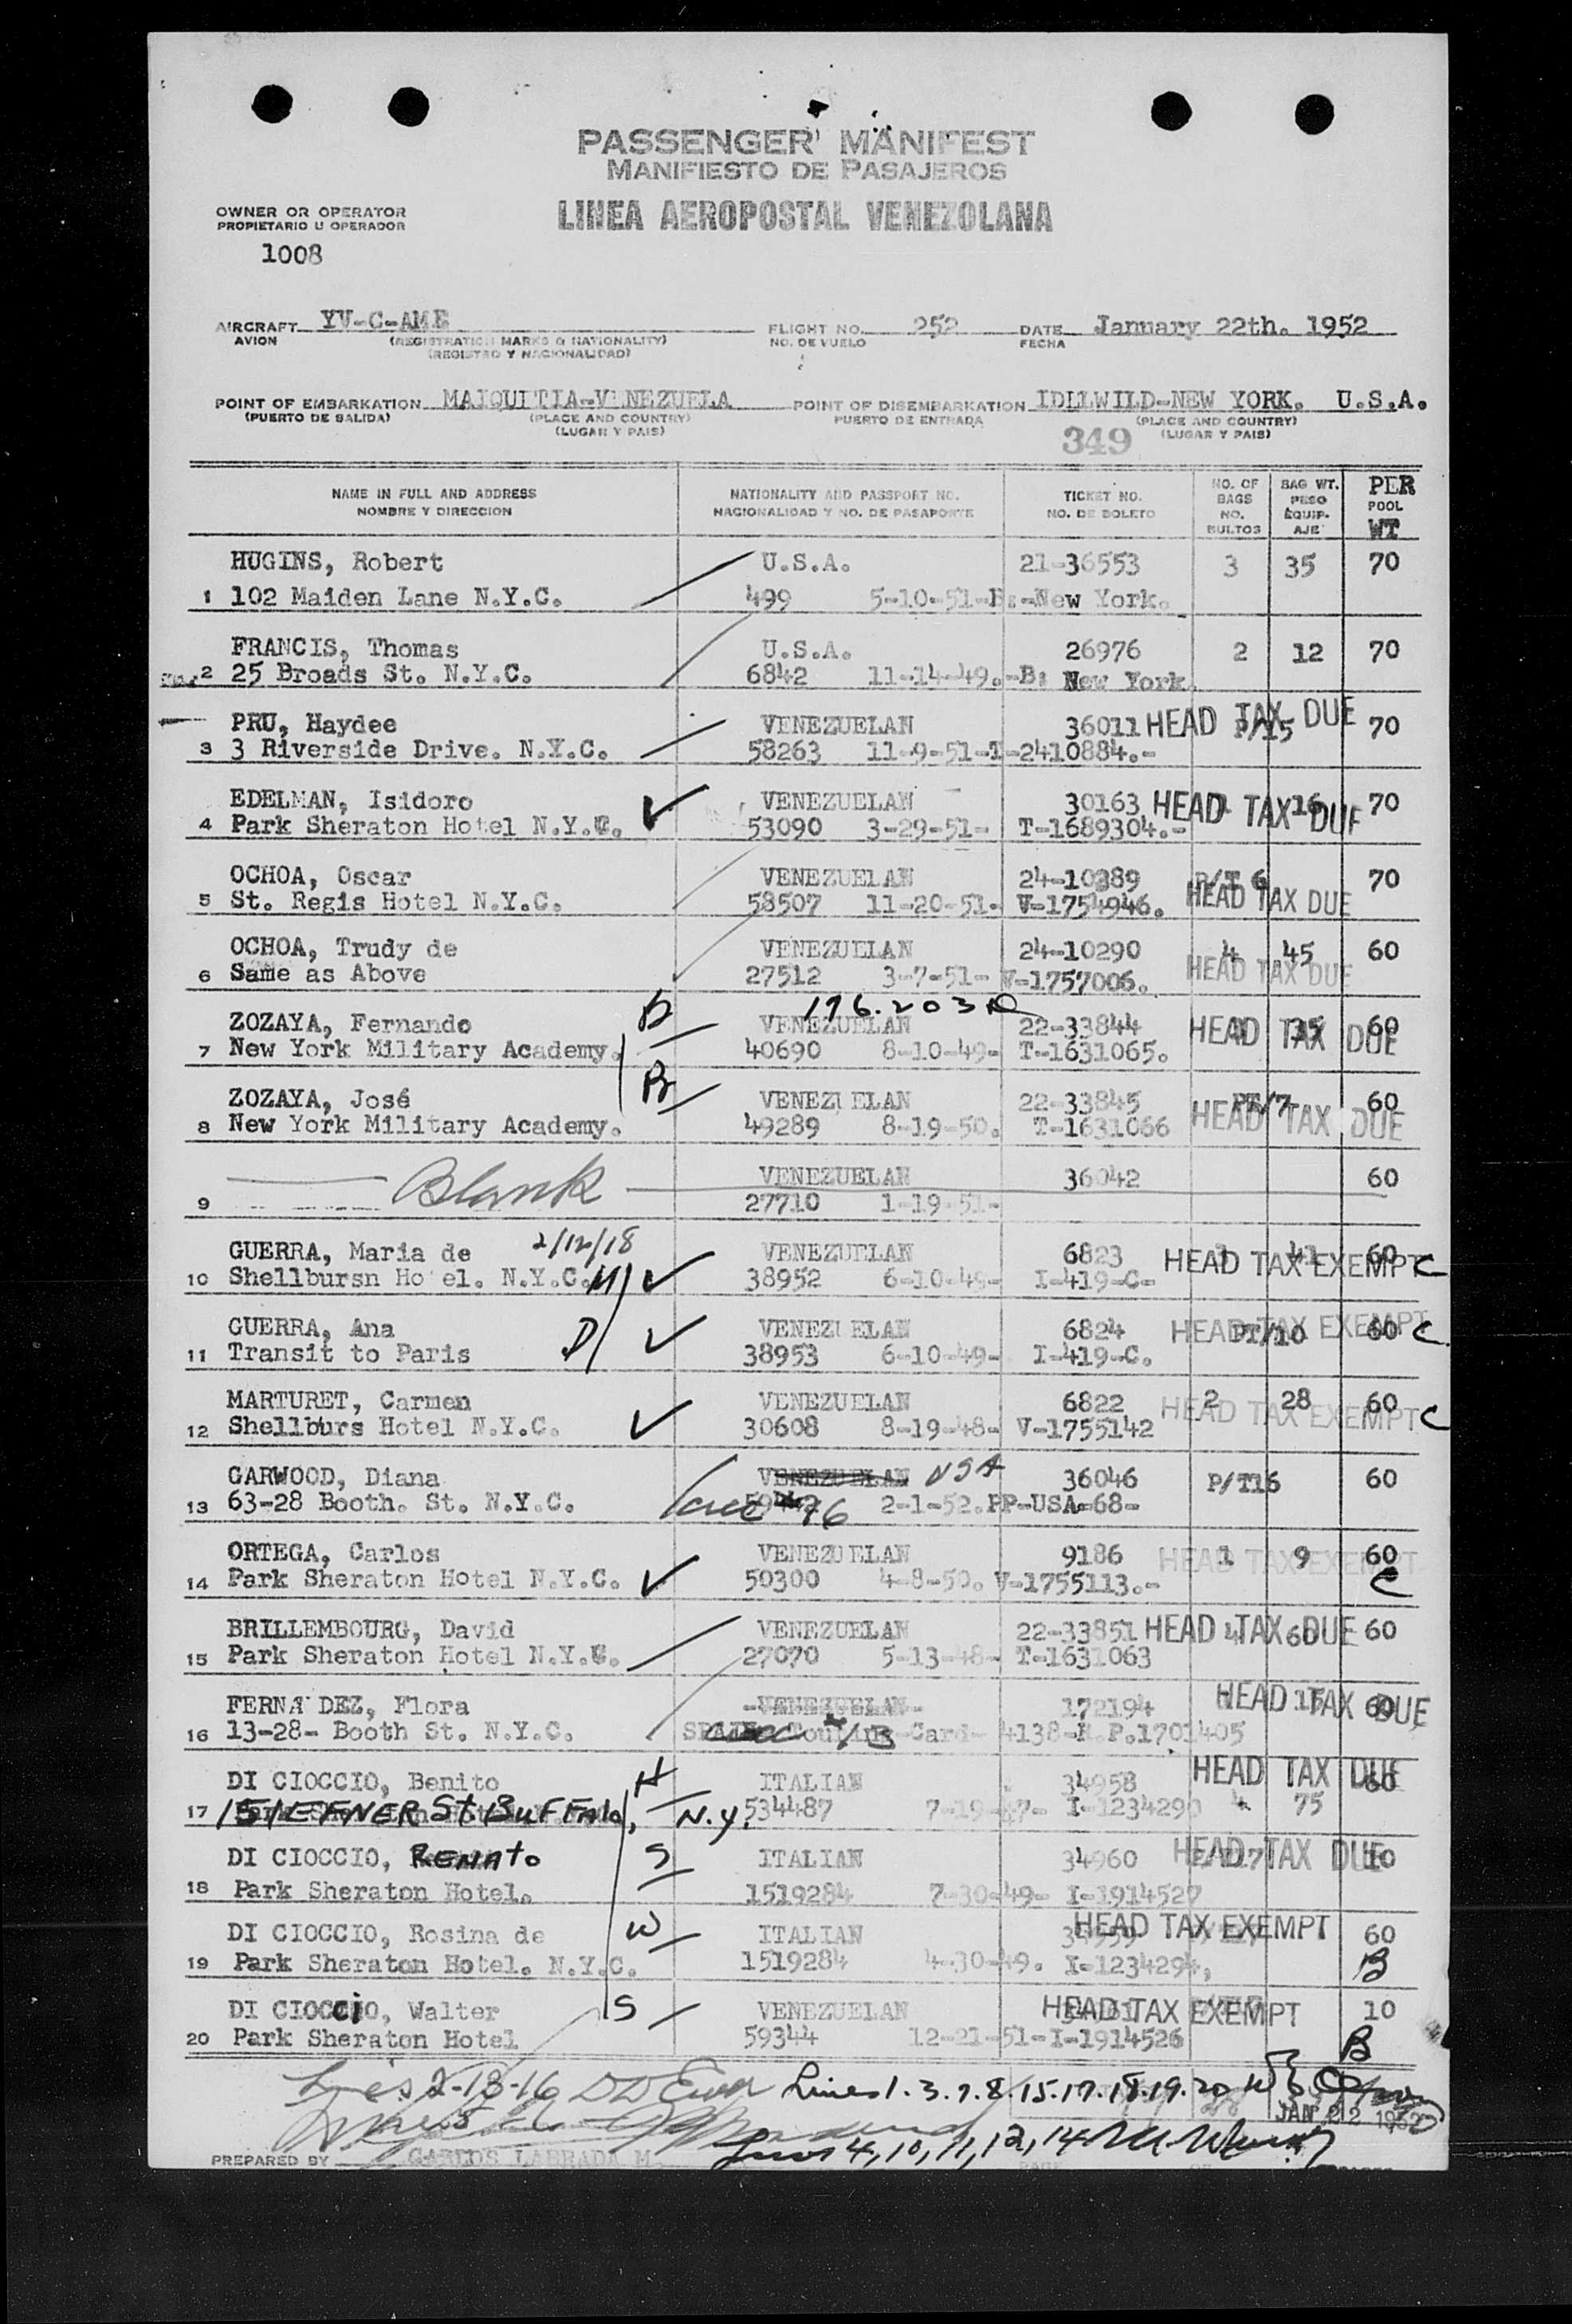 PASSENGER MANIFEST
MANIFIESTO DE PASAJEROS
LINEA AEROPOSTAL VENEZOLANA
OWNER OR OPERATOR
PROPIETARIO U OPERADOR
1008
AIRCRAFT YV-C-AME FLIGHT NO. 252 DATE January 22th. 1952
AVION (REGISTRATION MARKS & NATIONALITY) NO. DE VUELO FECHA
(REGISTRO Y NACIONALIDAD)
POINT OF EMBARKATION MAIQUITIA-VENEZUELA POINT OF DISEMBARKATION IDLLWILD-NEW YORK. U.S.A.
(PUERTO DE SALIDA) (PLACE AND COUNTRY) PUERTO DE ENTRADA (PLACE AND COUNTRY)
(LUGAR Y PAIS) 349 (LUGAR Y PAIS)
NAME IN FULL AND ADDRESS NATIONALITY AND PASSPORT NO. TICKET NO. NO. OF BAGS BAG WT. PER
NOMBRE Y DIRECCION NACIONALIDAD Y NO. DE PASAPORTE NO. DE BOLETO NO. BULTOS PESO EQUIP-AJE POOL WT
HUGINS, Robert U.S.A. 21-36553 3 35 70
1 102 Maiden Lane N.Y.C. 499 5-10-51-B:-New York.
FRANCIS, Thomas U.S.A. 26976 2 12 70
2 25 Broads St. N.Y.C. 6842 11-14-49.-B: New York
PRU, Haydee VENEZUELAN 36011 HEAD TAX DUE P/15 70
3 3 Riverside Drive. N.Y.C. 58263 11-9-51-T-2410884.-
EDELMAN, Isidoro VENEZUELAN 30163 HEAD TAX DUE 16 70
4 Park Sheraton Hotel N.Y.C. 53090 3-29-51- T-1689304.-
OCHOA, Oscar VENEZUELAN 24-10389 P/T 6 70
5 St. Regis Hotel N.Y.C. 58507 11-20-51- V-1754946. HEAD TAX DUE
OCHOA, Trudy de VENEZUELAN 24-10290 4 45 60
6 Same as Above 27512 3-7-51- V-1757006. HEAD TAX DUE
ZOZAYA, Fernando B VENEZUELAN 22-33844 HEAD TAX DUE 35 60
7 New York Military Academy. 40690 8-10-49- T-1631065.
ZOZAYA, José B VENEZUELAN 22-33845 PT/7 60
8 New York Military Academy. 49289 8-19-50. T-1631066 HEAD TAX DUE
Blank VENEZUELAN 36042 60
9 27710 1-19-51-
GUERRA, Maria de 2/12/18 VENEZUELAN 6823 HEAD TAX EXEMPT 41 60 C
10 Shellbursn Hotel. N.Y.C. M 38952 6-10-49- I-419-C-
GUERRA, Ana D VENEZUELAN 6824 HEAD TAX EXEMPT PT/10 60 C
11 Transit to Paris 38953 6-10-49- I-419-C.
MARTURET, Carmen VENEZUELAN 6822 2 28 60
12 Shellburs Hotel N.Y.C. 30608 8-19-48- V-1755142 HEAD TAX EXEMPT C
GARWOOD, Diana VENEZUELAN USA 36046 P/T16 60
13 63-28 Booth. St. N.Y.C. 2-1-52.PP-USA-68-
ORTEGA, Carlos VENEZUELAN 9186 HEAD TAX EXEMPT 1 9 60
14 Park Sheraton Hotel N.Y.C. 50300 4-8-50. V-1755113.- C
BRILLEMBOURG, David VENEZUELAN 22-33851 HEAD TAX DUE 4 60 60
15 Park Sheraton Hotel N.Y.C. 27070 5-13-48- T-1631063
FERNA DEZ, Flora VENEZUELAN 172194 HEAD TAX DUE 60
16 13-28- Booth St. N.Y.C. Card- 4138-R.P.1701405
DI CIOCCIO, Benito H ITALIAN 34958 HEAD TAX DUE 60
17 15 LEFNER St BUFFALO, N.Y. 534487 7-19-47- I-1234290 4 75
DI CIOCCIO, RENATO S ITALIAN 34960 HEAD TAX DUE 10
18 Park Sheraton Hotel. 1519284 7-30-49- I-1914527
DI CIOCCIO, Rosina de W ITALIAN 34959 HEAD TAX EXEMPT 60
19 Park Sheraton Hotel. N.Y.C. 1519284 4-30-49. I-1234294, B
DI CIOCCIO, Walter S VENEZUELAN HEAD TAX EXEMPT 10
20 Park Sheraton Hotel 59344 12-21-51-I-1914526 B
Lines 2-13-16 Lines 1.3.7.8.15.17.18.19.20
JAN 22 1952
Lines 4, 10, 11, 12, 14
PREPARED BY CARLOS LABRADA M.